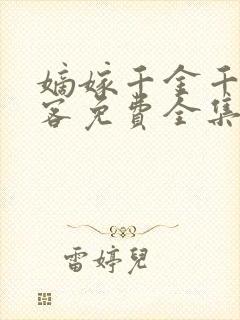 嫡嫁千金千
客免費全集
雷婷兒